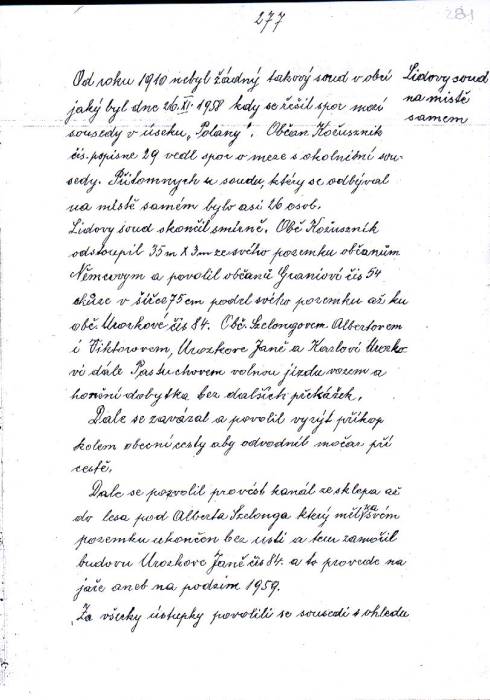 277
281
Od roku 1910 nebyl žádný takový soud v obci
jaký byl dne 26.XI. 1958 kdy se řešil spor mezi
sousedy v úseku „Polany". Občan Kožusznik
čís. popisne 29 vedl spor o meze s okolnitní sou-
sedy. Přítomnych u soudu, ktery se odbýval
na místě samém bylo asi 26 osob.
Lidovy soud skončil smírně. Obč Kožusznik
odstoupil 35 m x 3 m ze svého pozemku občanům
Němcovym a povolil občaně Graniové čís 54
chůze v šířce 75 cm podel svého pozemku až ku
obč. Urozkové čís 84. Obč. Szelongorem Albertorem
i Viktorovem, Urozkove Janě a Karlovi Urozko
vi dále Pastuchorem volnou jízdu vozem a
honění dobytka bez dalších překážek.
Dale se zavázal a povolil vyrýt příkop
kolem obecní cesty aby odvodnil močar při
cestě.
Dale se pozvolil provést kanál ze sklepa až
do lesa pod Alberta Szelonga ktery měl na svém
pozemku ukončen bez usti a tim zamočil
budovu Urozkove Janě čís 84. a to provede na
jaře aneb na podzim 1959.
Za všecky ústupky povolili se sousedi s ohledu
Lidovy soud
na mistě
samem